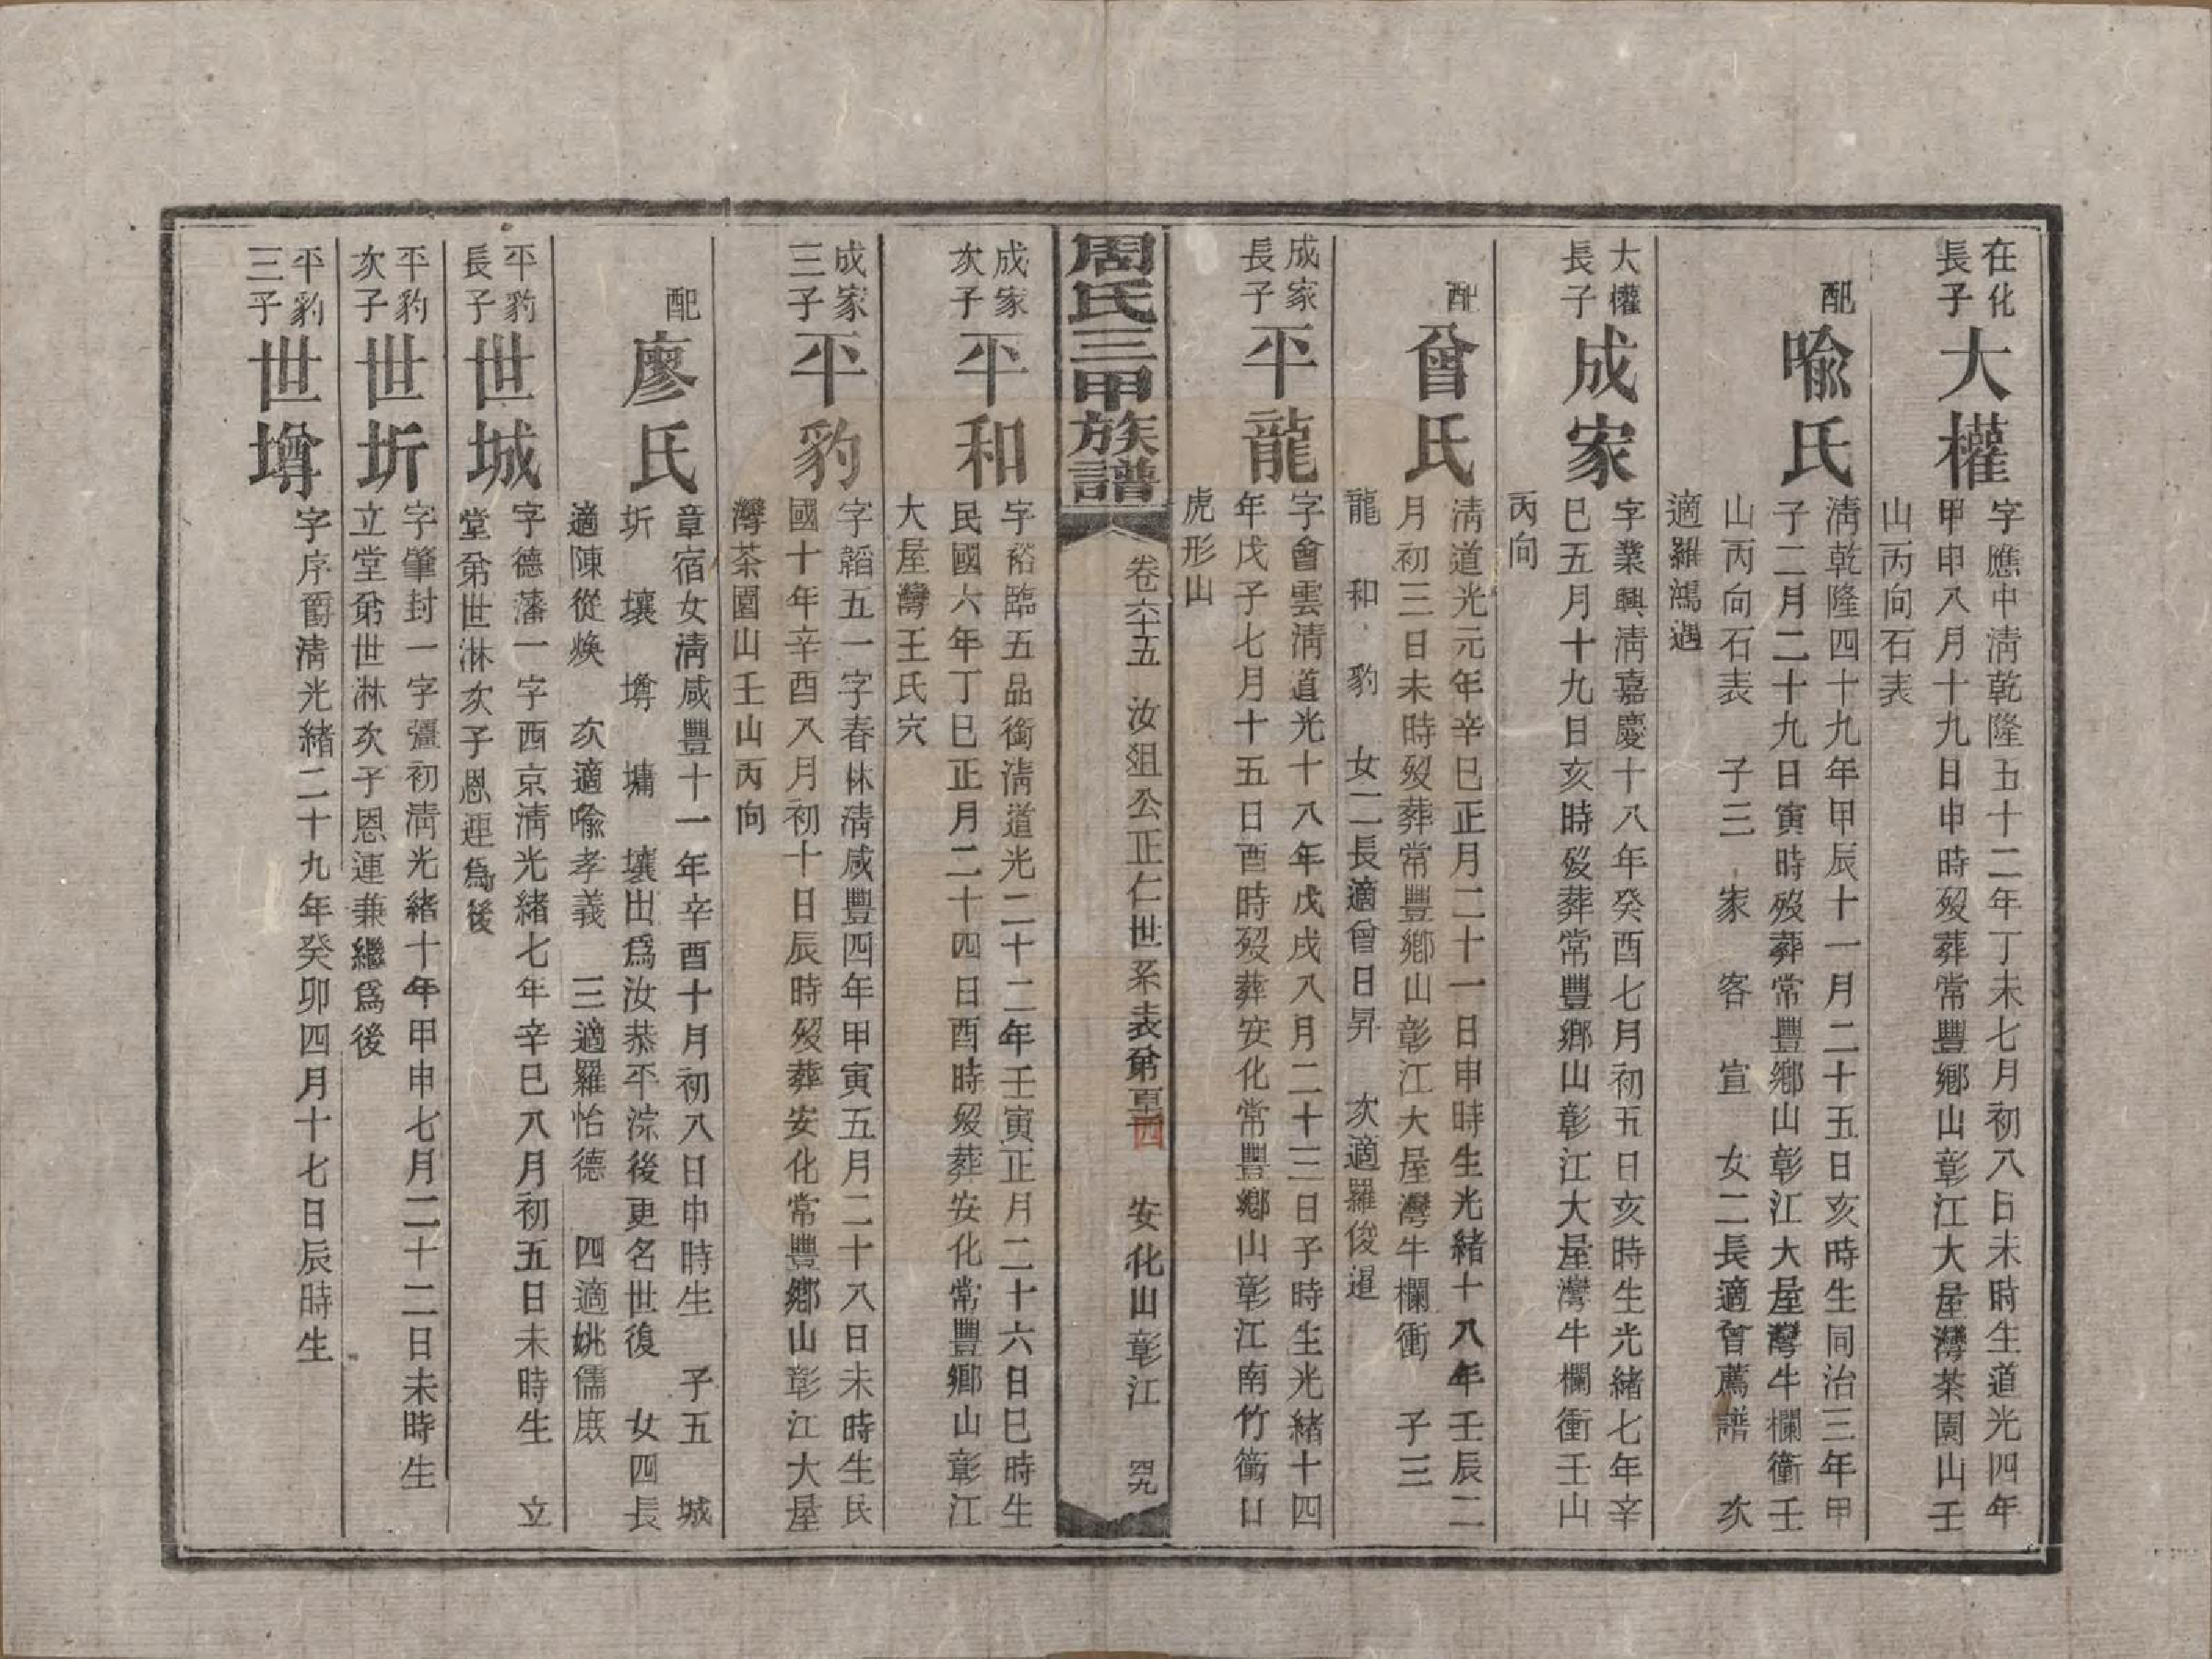 在化
長子
大權
字應中淸乾隆五十二年丁未七月初八日未時生道光四年
甲申八月十九日申時歿葬常豐鄕山彰江大屋灣茶園山壬
山丙向石表
配
喩氏
淸乾隆四十九年甲辰十一月二十五日亥時生同治三年甲
子二月二十九日寅時歿葬常豐鄕山彰江大屋灣牛欄衝壬
山丙向石表 子三 家 客 宣 女二長適曾薦譜 次
適羅鴻遇
大權
長子
成家
字業興淸嘉慶十八年癸酉七月初五日亥時生光緒七年辛
巳五月十九日亥時歿葬常豐鄕山彰江大屋灣牛欄衝壬山
丙向
配
曾氏
淸道光元年辛巳正月二十一日申時生光緒十八年壬辰二
月初三日未時歿葬常豐鄕山彰江大屋灣牛欄衝 子三
龍 和 豹 女二長適曾日昇 次適羅俊暹
成家
長子
平龍
字會雲淸道光十八年戊戌八月二十三日子時生光緒十四
年戊子七月十五日酉時歿葬安化常豐鄕山彰江南竹衝口
虎形山
周氏三甲族譜
卷六十五 汝爼公正仁世系表第 四 安化山彰江 四九
成家
次子
平和
字裕臨五品銜淸道光二十二年壬寅正月二十六日巳時生
民國六年丁巳正月二十四日酉時歿葬安化常豐鄕山彰江
大屋灣王氏穴
成家
三子
平豹
字韜五一字春林淸咸豐四年甲寅五月二十八日未時生民
國十年辛酉八月初十日辰時歿葬安化常豐鄕山彰江大屋
灣茶園山壬山丙向
配
廖氏
章宿女淸咸豐十一年辛酉十月初八日申時生 子五 城
圻 壤 墫 墉 壤出爲汝恭平淙後更名世復 女四長
適陳從煥 次適喩孝義 三適羅怡德 四適姚儒庥
平豹
長子
世城
字德藩一字西京淸光緒七年辛巳八月初五日未時生 立
堂弟世淋次子恩連爲後
平豹
次子
世圻
字肇封一字彊初淸光緒十年甲申七月二十二日未時生
立堂弟世淋次子恩連兼繼爲後
平豹
三子
世墫
字序爵淸光緒二十九年癸卯四月十七日辰時生